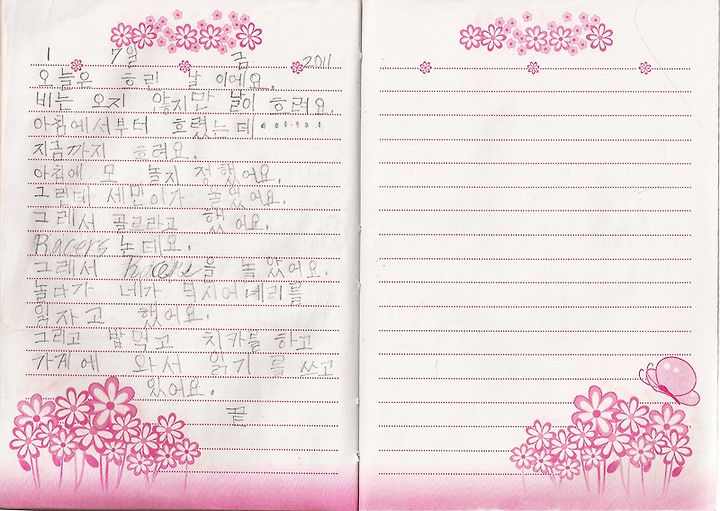 1 7일 금 2011
오늘은 흐린 날 이에요.
비는 오지 않지만 날이 흐려요.
아침에서부터 흐렸는데.......
지금까지 흐려요.
아침에 모 놀지 정했어요.
그런데 세빈이가 놀았어요.
그래서 골르라고 했어요.
Racers 노데요.
그래서 Racers을 놀았어요.
놀다가 네가
읽자고 했어요.
그리고 밥먹고 치카블 하고
가게에 와서 읽기를 쓰고
있어요.
끝